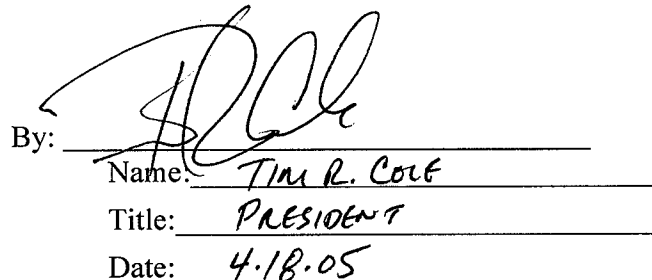 By:
Name: TIM R. COLE
Title: PRESIDENT
Date: 4.18.05